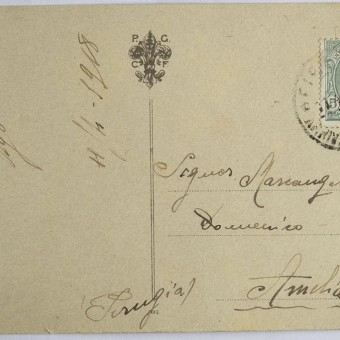 P. G.
C. F.
11/4-1918
Signor Marcang
Domenico
Amelia
(Perugia)